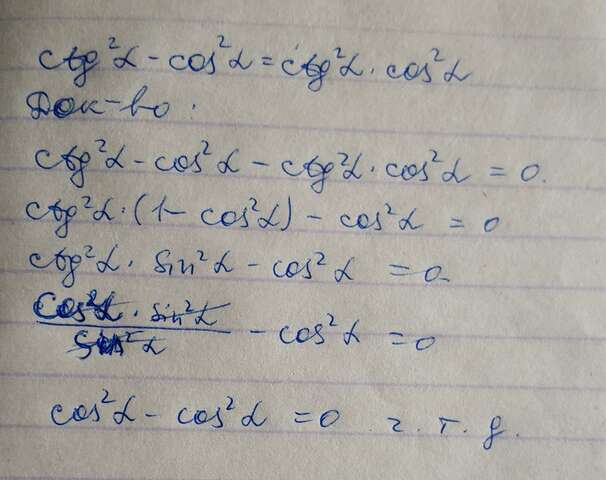 ctg²α - cos²α = ctg²α · cos²α
Док-во:
ctg²α - cos²α - ctg²α · cos²α = 0.
ctg²α · (1 - cos²α) - cos²α = 0
ctg²α · sin²α - cos²α = 0
cos²α · sin²α / sin²α - cos²α = 0
cos²α - cos²α = 0 ч. т. д.